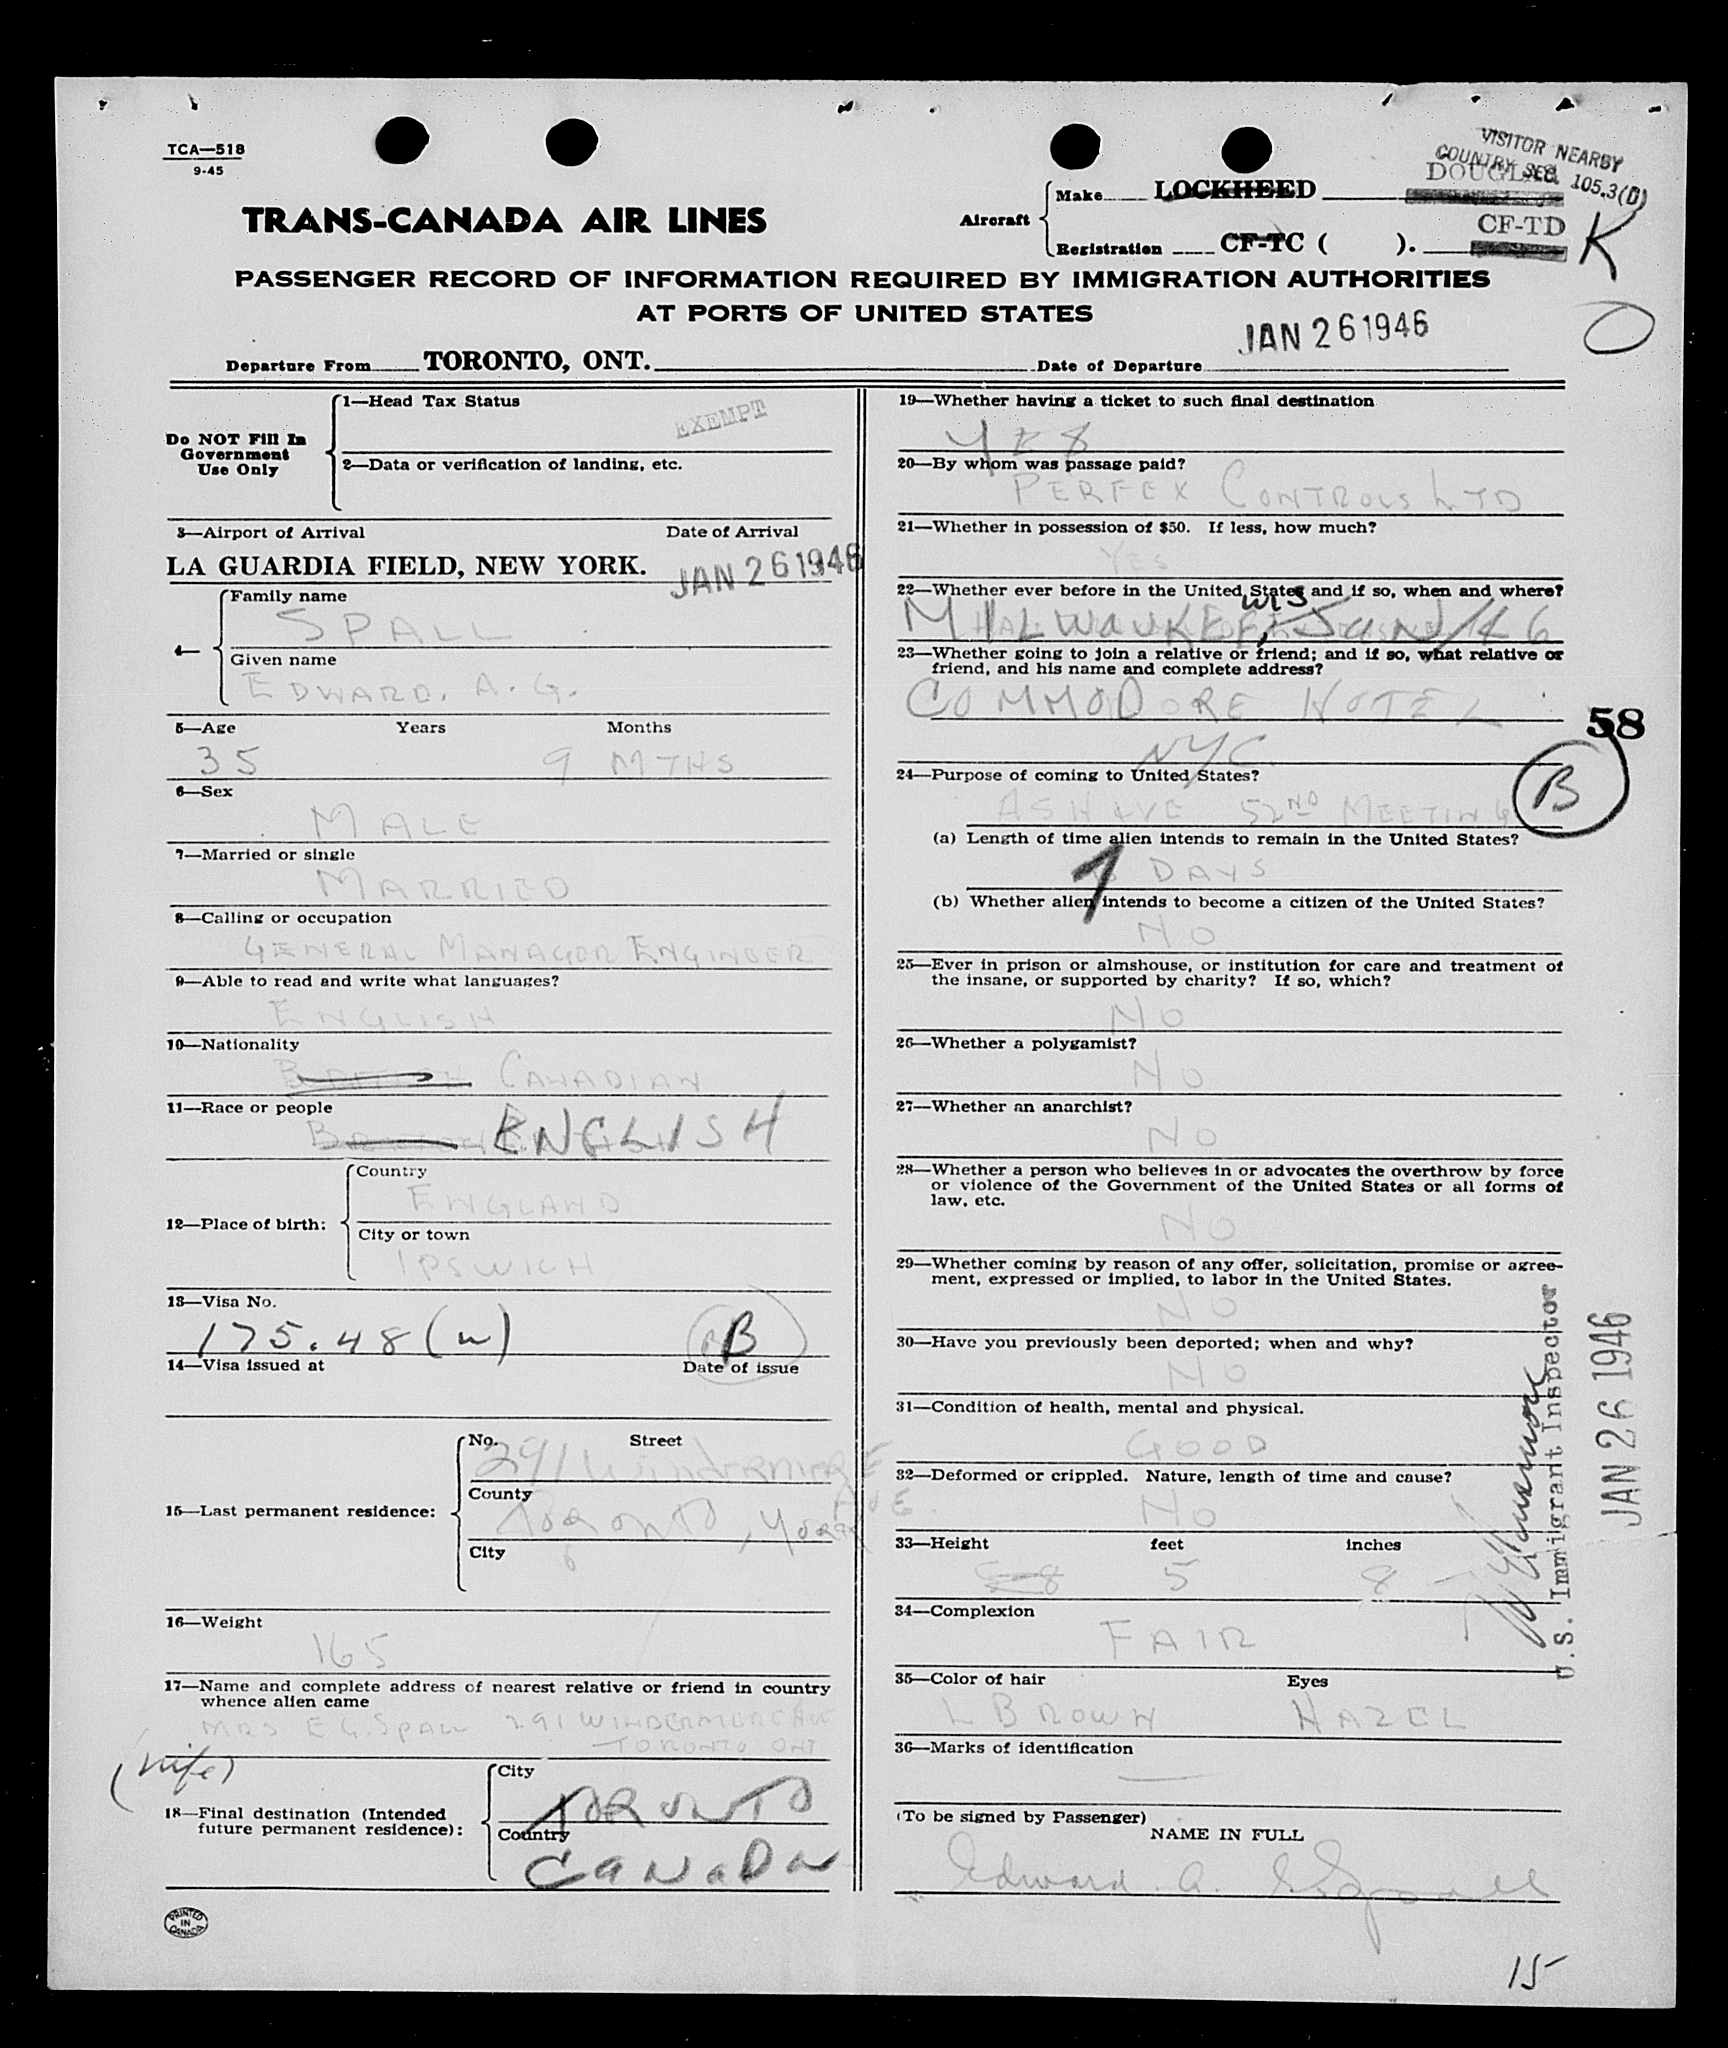 TCA—518
9-45
VISITOR NEARBY
COUNTRY SEC. 105.3(B)
DOUGLAS
TRANS-CANADA AIR LINES
Aircraft
Make LOCKHEED
Registration CF-TC ( ).
CF-TD K
PASSENGER RECORD OF INFORMATION REQUIRED BY IMMIGRATION AUTHORITIES
AT PORTS OF UNITED STATES
JAN 26 1946
Departure From TORONTO, ONT. Date of Departure
Do NOT Fill In
Government
Use Only
1—Head Tax Status
EXEMPT
2—Data or verification of landing, etc.
3—Airport of Arrival Date of Arrival
LA GUARDIA FIELD, NEW YORK. JAN 26 1946
4—
Family name
SPALL
Given name
EDWARD. A. G.
5—Age Years Months
35 9 MTHS
6—Sex
MALE
7—Married or single
MARRIED
8—Calling or occupation
GENERAL MANAGER ENGINEER
9—Able to read and write what languages?
ENGLISH
10—Nationality
CANADIAN
11—Race or people
ENGLISH
12—Place of birth:
Country
ENGLAND
City or town
IPSWICH
13—Visa No.
175.48 (w) B
14—Visa issued at Date of issue
15—Last permanent residence:
No. Street
291 WINDERMERE
AVE
County
TORONTO, YORK
City
16—Weight
165
17—Name and complete address of nearest relative or friend in country
whence alien came
MRS E G. SPALL 291 WINDERMERE AVE
TORONTO ONT
(Wife)
18—Final destination (Intended
future permanent residence):
City
TORONTO
Country
CANADA
PRINTED
IN
CANADA
19—Whether having a ticket to such final destination
YES
20—By whom was passage paid?
PERFEX CONTROLS LTD
21—Whether in possession of $50. If less, how much?
YES
22—Whether ever before in the United States and if so, when and where?
MILWAUKEE, WIS JAN/46
23—Whether going to join a relative or friend; and if so, what relative or
friend, and his name and complete address?
COMMODORE HOTEL
NYC.
58
24—Purpose of coming to United States?
ASHAVE 52ND MEETING
B
(a) Length of time alien intends to remain in the United States?
7 DAYS
(b) Whether alien intends to become a citizen of the United States?
NO
25—Ever in prison or almshouse, or institution for care and treatment of
the insane, or supported by charity? If so, which?
NO
26—Whether a polygamist?
NO
27—Whether an anarchist?
NO
28—Whether a person who believes in or advocates the overthrow by force
or violence of the Government of the United States or all forms of
law, etc.
NO
29—Whether coming by reason of any offer, solicitation, promise or agree-
ment, expressed or implied, to labor in the United States.
NO
30—Have you previously been deported; when and why?
NO
31—Condition of health, mental and physical.
GOOD
32—Deformed or crippled. Nature, length of time and cause?
NO
33—Height feet inches
5 8
34—Complexion
FAIR
35—Color of hair Eyes
L BROWN HAZEL
36—Marks of identification
—
(To be signed by Passenger)
NAME IN FULL
Edward A. G. Spall
U.S. Immigrant Inspector
JAN 26 1946
15